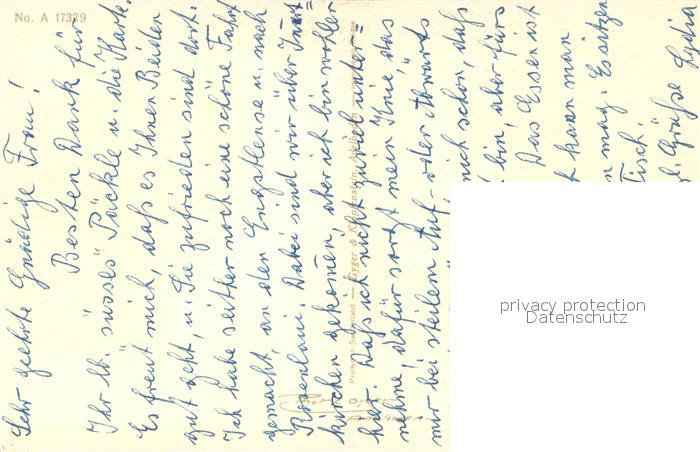 No. A 17329
Sehr geehrte Gnädige Frau!
Besten Dank für
Ihr lb. süsses Päckle u. die Karte.
Es freut mich, dass es Ihnen Beiden
gut geht, u. Sie zufrieden sind dort.
Ich habe seither noch eine schöne Fahrt
gemacht, an den Engstlensee u. nach
Rosenlaui. Dabei sind wir über Innert=
kirchen gekommen, aber ich bin wohler
hier. Dass ich nicht zuviel unter=
nehme, dafür sorgt mein Knie, das
mir bei steilem Auf- oder Abwärts
mich schon, dass
bin, aber fürs
Das Essen ist
kann man
mag. Es sitzen
Tisch!
Grüsse Lydia
Printed in Switzerland — Gyger & Klopfenstein, Adelboden
Photo Gyger
Adelboden
privacy protection
Datenschutz